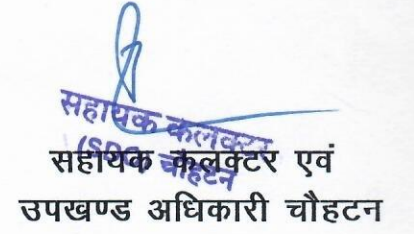 सहायक कलक्टर
(SDO) चौहटन
सहायक कलक्टर एवं
उपखण्ड अधिकारी चौहटन